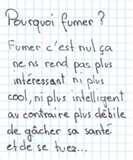 Pourquoi fumer ?
Fumer c'est nul ça
ne ns rend pas plus
intéressant ni plus
cool, ni plus intelligent
au contraire plus débile
de gâcher sa santé
et de se tuez...